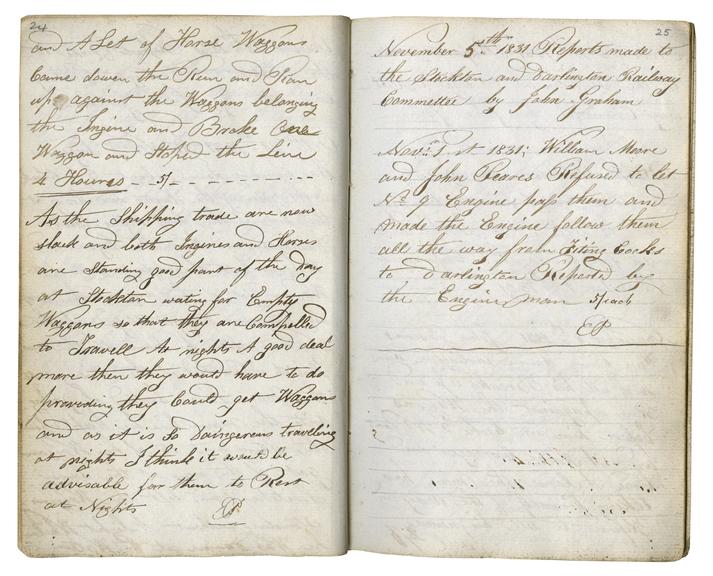 24
and A Set of Horse Waggons
Came down the Run and Ran
up against the Waggons belonging
the Ingine and Broke One
Waggon and Stoped the Line
4 Houres - 5/- - - - - -
As the Shipping trade are now
slack and both Ingines and Horses
are standing good part of the Day
at Stockton wating for Empty
Waggons so that they are Compelled
to Travell At nights A good deal
more then they would have to do
provideing they Could get Waggons
and as it is So Daingerous traveling
at nights I think it would be
advisable for them to Rest
at Nights
25
November 5th 1831 Reports made to
the Stockton and Darlington Railway
Committee by John Graham
Novr 1st 1831; William Moore
and John Peares Refused to let
No 9 Engine pass them and
made the Engine follow them
all the way from Fiting Cocks
to Darlington Reported by
the Engine man 5/each